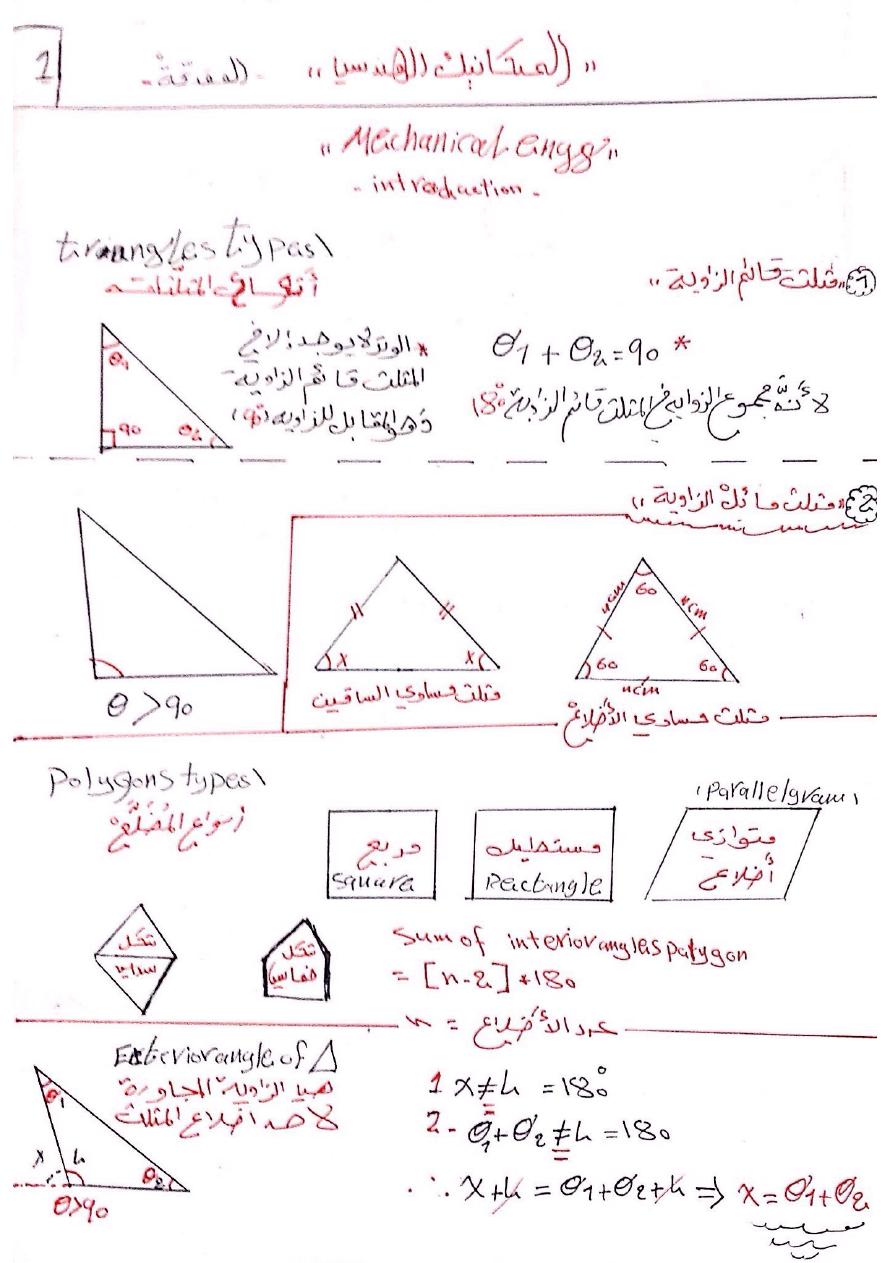 1
"الميكانيك الهندسي" - المقدمة -
"Mechanical engg"
- introduction -
triangles types\
أنواع المثلثات
① "مثلث قائم الزاوية"
θ1 + θ2 = 90 *
لأنَّه مجموع الزوايا في المثلث قائم الزاوية 180
* الوتر لا يوجد إلا في
المثلث قائم الزاوية
وهو المقابل للزاويه (90)
θ1
90
θ2
② "مثلث مائل الزاوية"
θ > 90
x
x
مثلث متساوي الساقين
60
60
60
4cm
4cm
4cm
مثلث متساوي الأضلاع
Polygons types\
أنواع المُضَلَّع
مربع
squara
مستطيل
Rectangle
(parallelgram)
متوازي
أضلاع
شكل
سداسي
شكل
خماسي
Sum of interior angles polygon
= [n-2] * 180
n = عدد الأضلاع
Exterior angle of Δ
هي الزاوية المجاورة
لاحد اضلاع المثلث
θ1
x
h
θ2
θ>90
1 x + h = 180°
2- θ1 + θ2 + h = 180
∴ x + h = θ1 + θ2 + h ⇒ x = θ1 + θ2